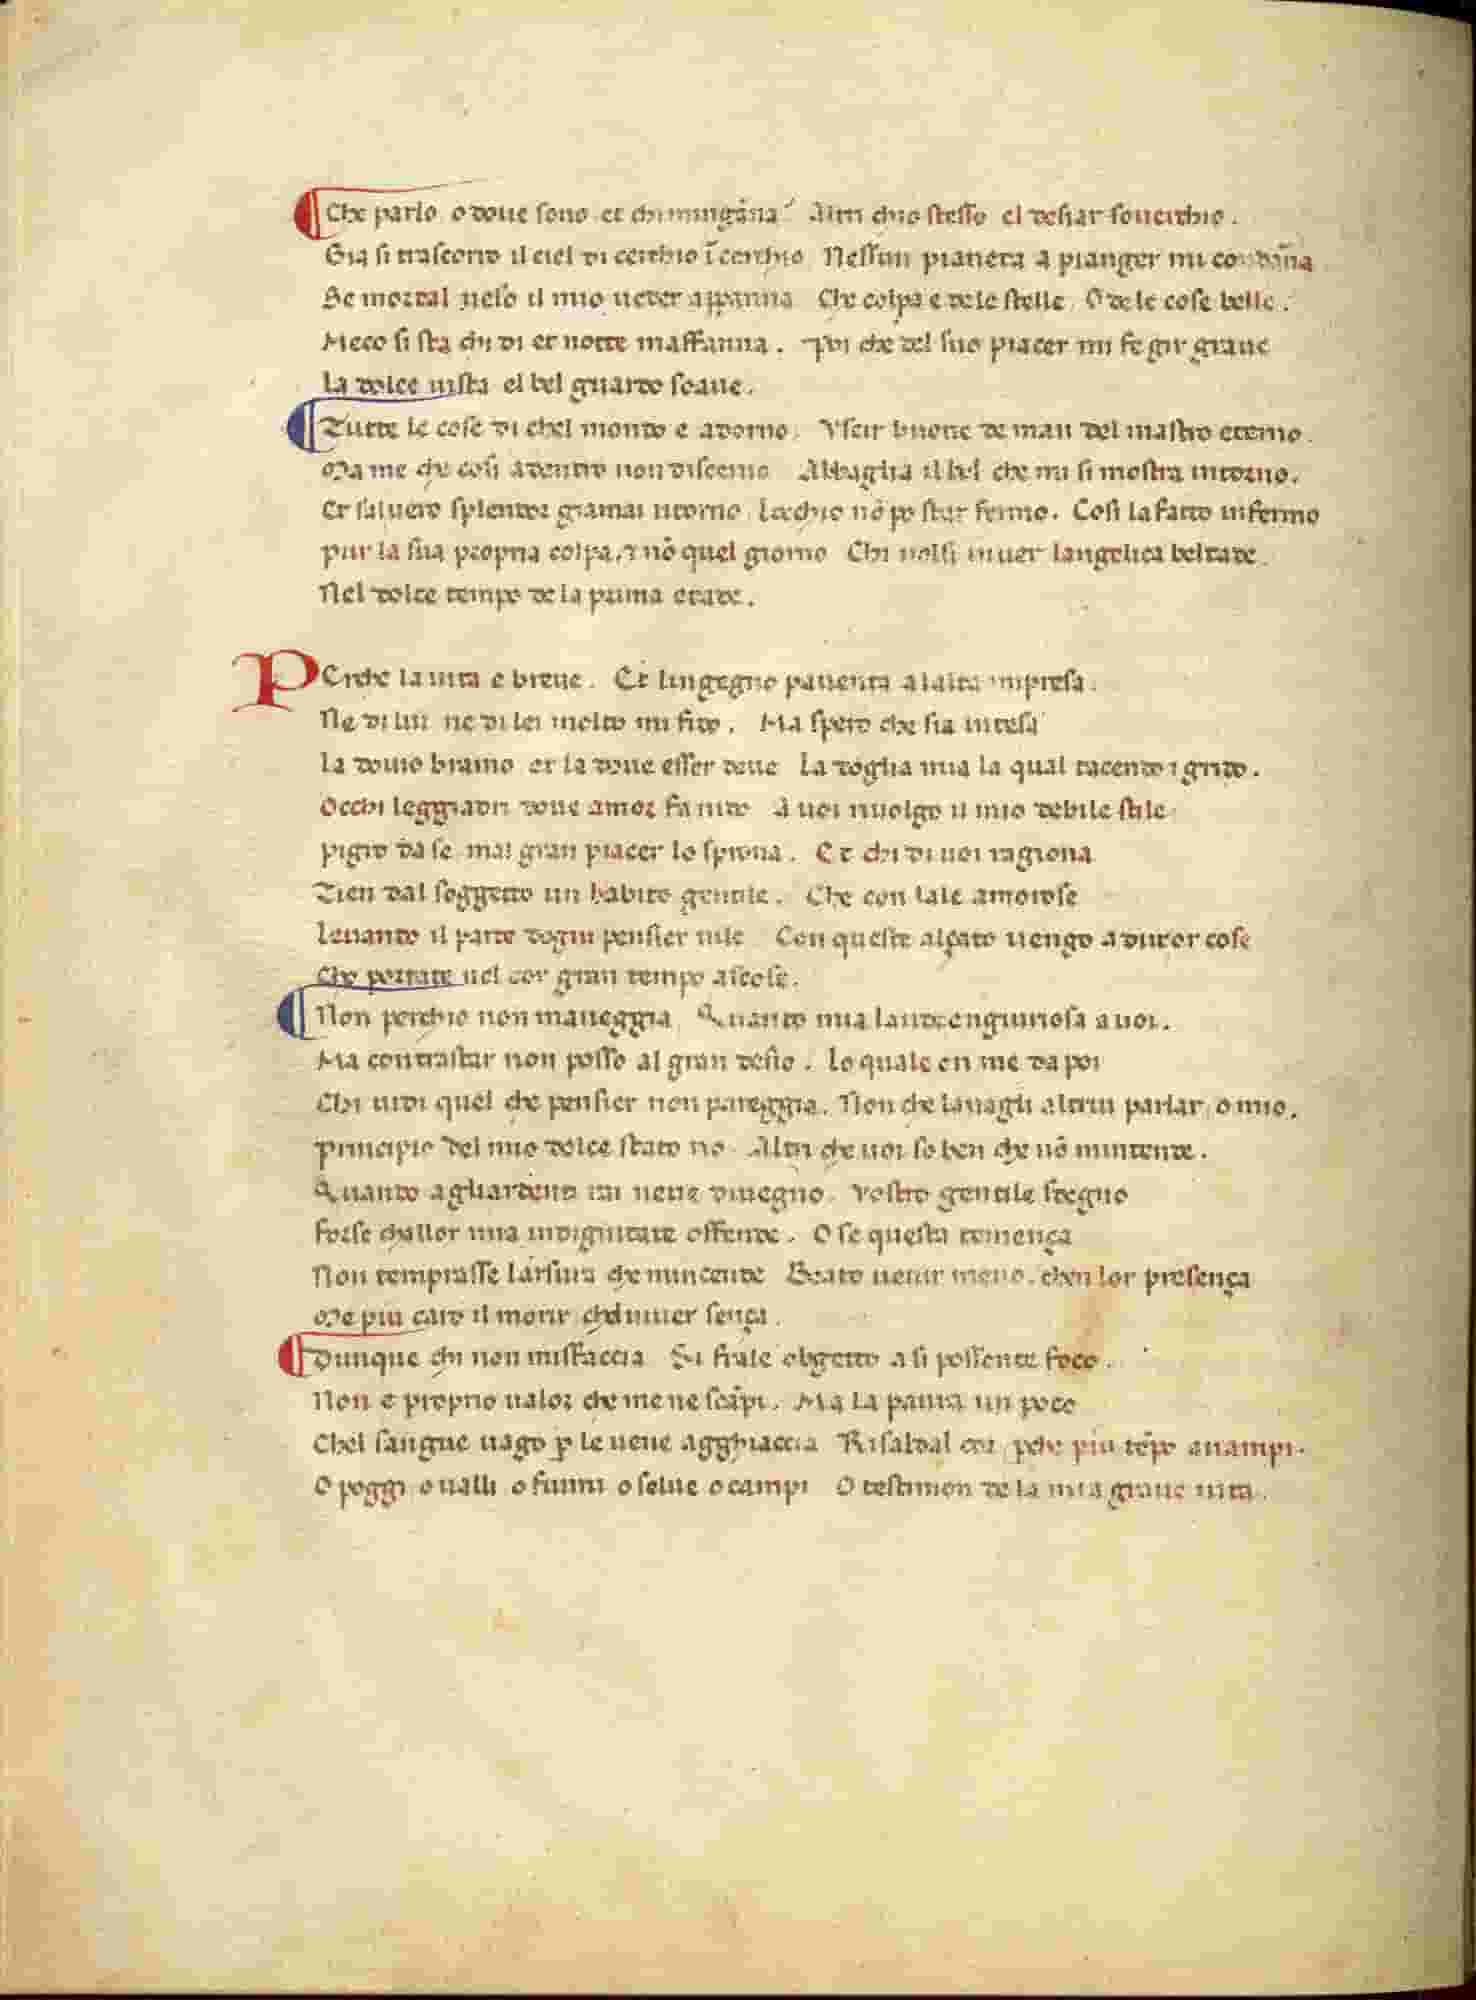 Che parlo o doue sono et chi mingãna Altri chio stesso el desiar souerchio.
Gia si trascorro il ciel di cerchio ĩ cerchio Nessun pianeta a pianger mi condãna
Se mortal uelo il mio ueder appanna Che colpa e dele stelle. O dele cose belle.
Meco si sta chi di et notte maffanna. Poi che del suo piacer mi fe gir graue
La dolce uista el bel guardo soaue.
Tutte le cose di chel mondo e adorno. Vscir buone de man del mastro eterno.
Ma me che cosi adentro non discerno Abbaglia il bel che mi si mostra intorno.
Et saluero splendor giamai ritorno Locchio nõ po star fermo. Cosi la fatto infermo
pur la sua propria colpa, ⁊ nõ quel giorno Chi uolsi inuer langelica beltade.
Nel dolce tempo de la prima etade.
PErche la uita e breue. Et lingegno pauenta a lalta impresa.
Ne di lui ne di lei molto mi fido. Ma spero che sia intesa
La douio bramo et la doue esser deue La doglia mia la qual tacendo i grido.
Occhi leggiadri doue amor fa nido A uoi riuolgo il mio debile stile
pigro da se mal gran piacer lo sprona. Et chi di uoi ragiona
Tien dal soggetto un habito gentile. Che con lale amorose
Leuando il parte dogni pensier uile Con queste alçato uengo a dir or cose
Cho portate nel cor gran tempo ascose.
Non perchio non maueggia Quanto mia laude engiuriosa a uoi.
Ma contrastar non posso al gran desio. lo quale en me da poi
Chi uidi quel che pensier non pareggia. Non che lauagli altrui parlar, o mio.
principio del mio dolce stato rio Altri che uoi so ben che nõ mintende.
Quando agliardenti rai neue diuegno. Vostro gentile sdegno
Forse challor mia indignitate offende. O se questa temença
Non temprasse larsura che mincende Beato uenir meno. chen lor presença
Me piu caro il morir chel uiuer sença.
Dunque chi non misfaccia Si frale obgetto a si possente foco.
Non e proprio ualor che me ne scãpi. Ma la paura un poco
Chel sangue uago ꝑ le uene agghiaccia Risaldal cor, pche piu tẽpo auampi.
O poggi o ualli o fiumi o selue o campi O testimon de la mia graue uita.